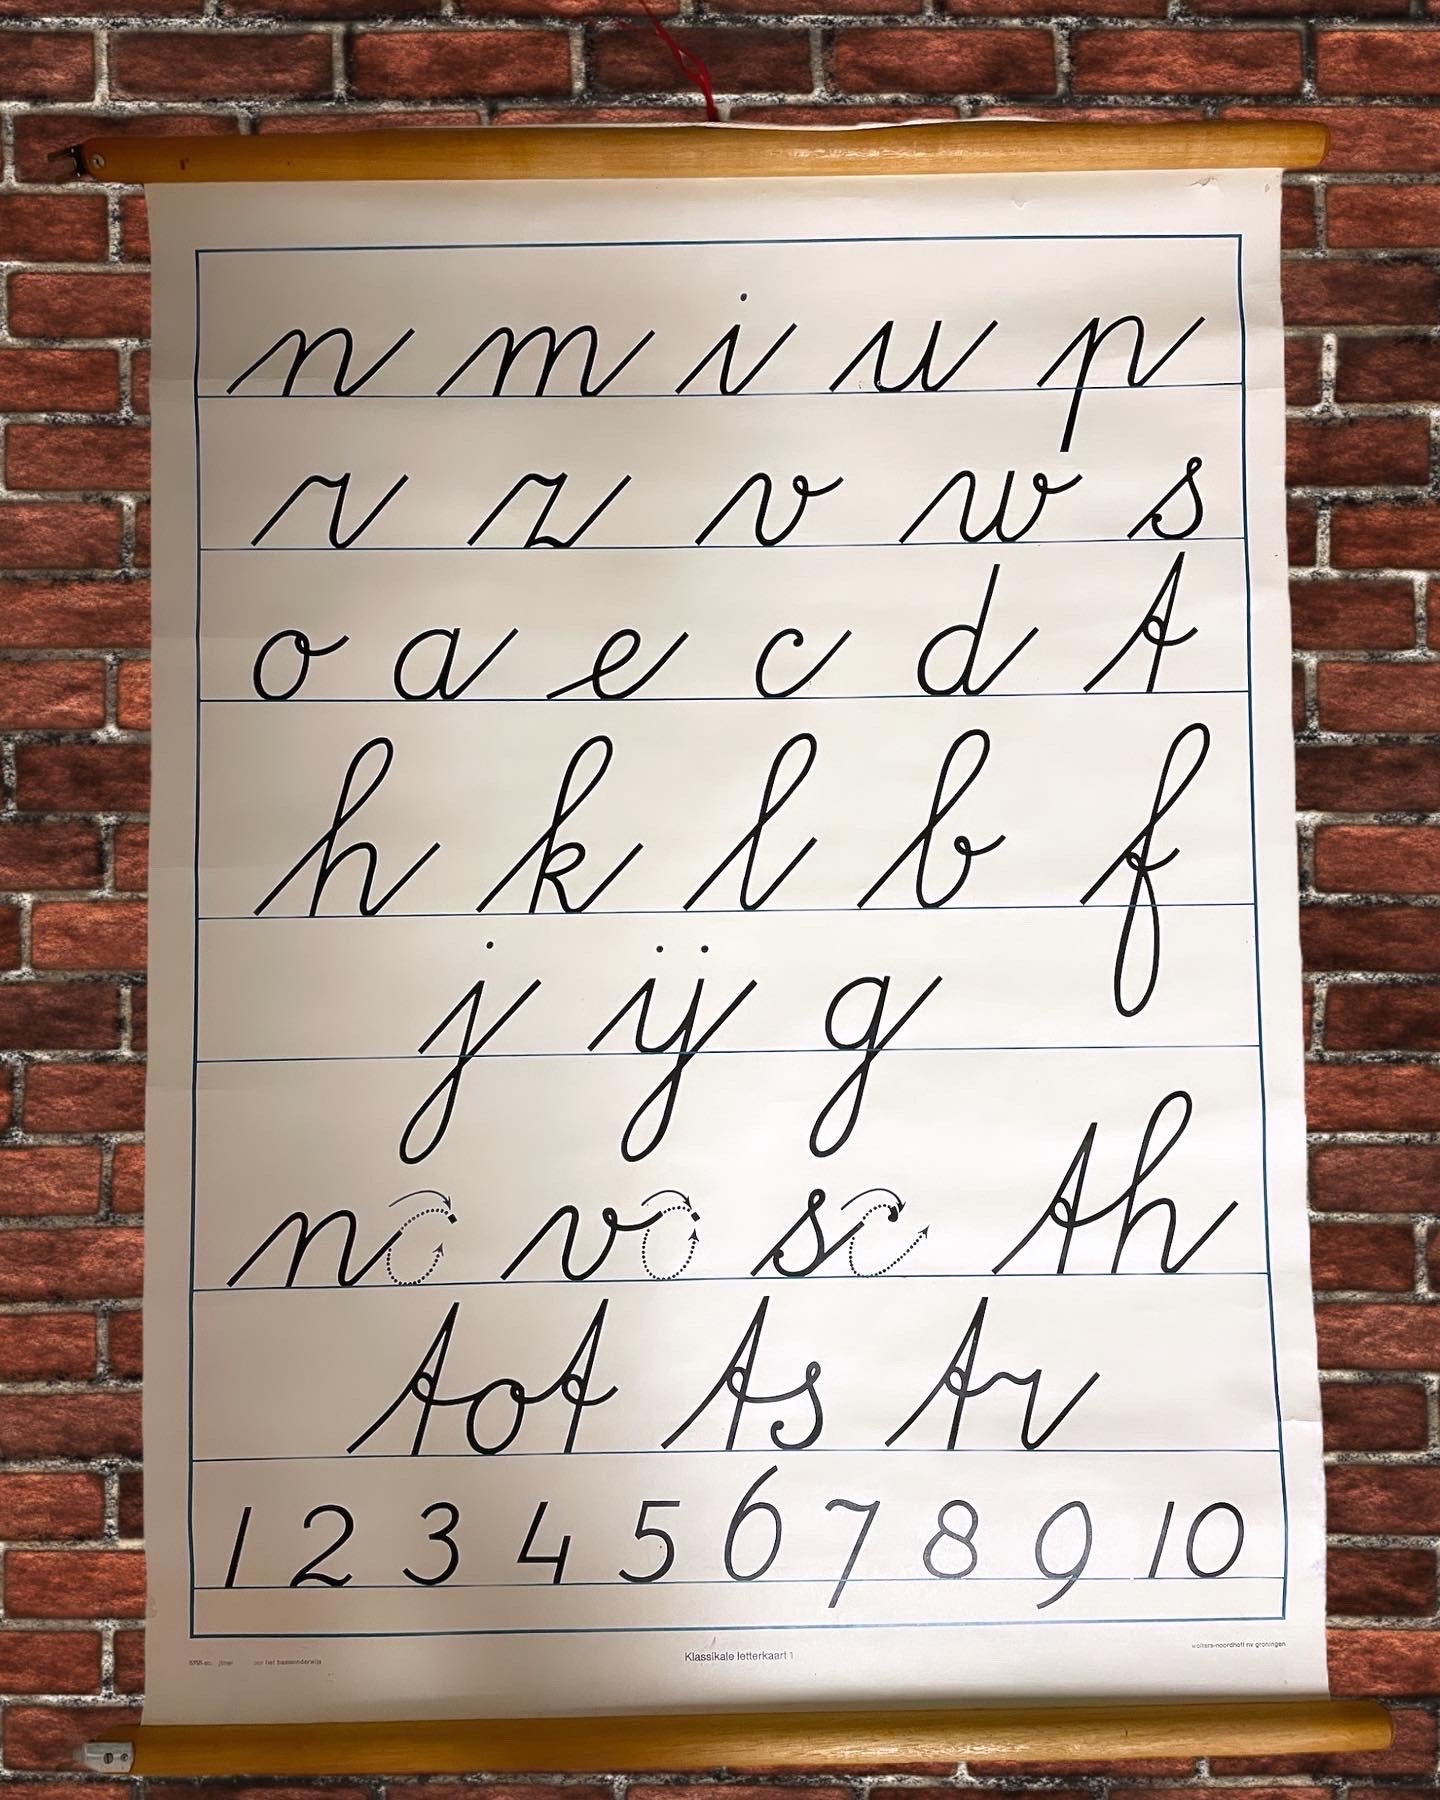 n m i u p
r z v w s
o a e c d t
h k l b f
j ij g
nc vo sc th
tot ts tr
1 2 3 4 5 6 7 8 9 10
Klassikale letterkaart 1
wolters-noordhoff nv groningen
het basisonderwijs